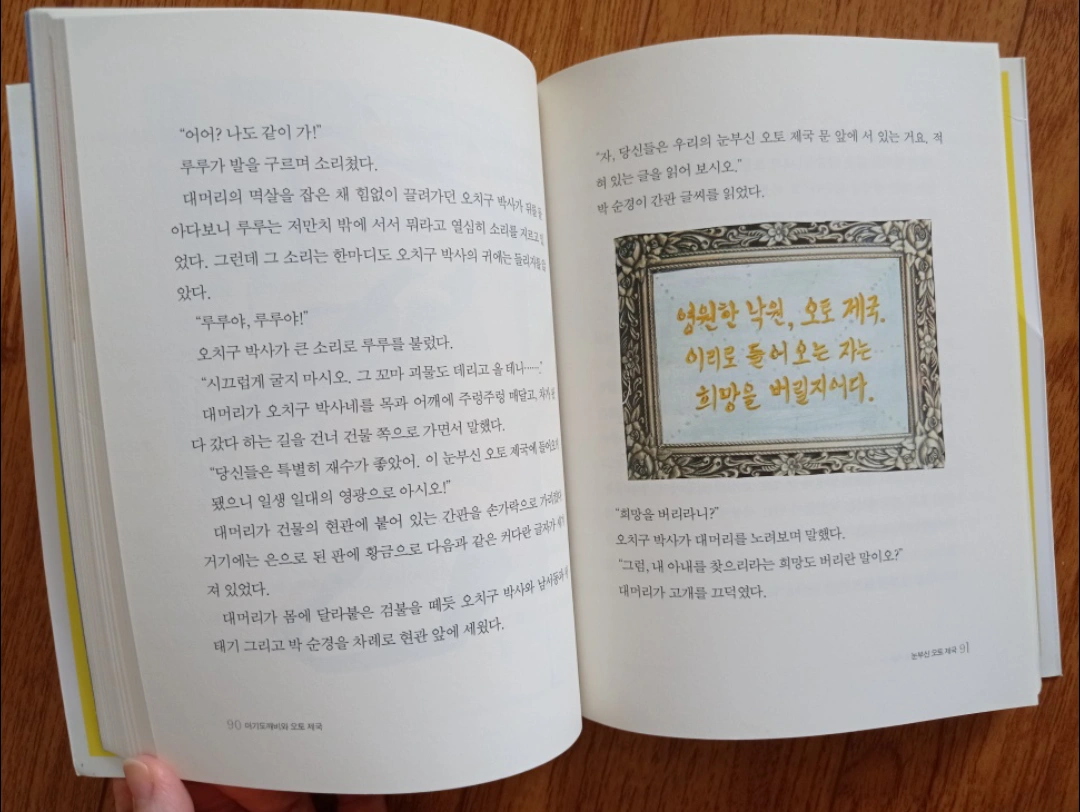 “어어? 나도 같이 가!”
루루가 발을 구르며 소리쳤다.
대머리의 멱살을 잡은 채 힘없이 끌려가던 오치구 박사가 뒤를 돌
아다보니 루루는 저만치 밖에 서서 뭐라고 열심히 소리를 지르고 있
었다. 그런데 그 소리는 한마디도 오치구 박사의 귀에는 들리지를 않
았다.
“루루야, 루루야!”
오치구 박사가 큰 소리로 루루를 불렀다.
“시끄럽게 굴지 마시오. 그 꼬마 괴물도 데리고 올 테니…….”
대머리가 오치구 박사네를 목과 어깨에 주렁주렁 매달고, 차가
다 갔다 하는 길을 건너 건물 쪽으로 가면서 말했다.
“당신들은 특별히 재수가 좋았어. 이 눈부신 오토 제국에 들어오게
됐으니 일생 일대의 영광으로 아시오!”
대머리가 건물의 현관에 붙어 있는 간판을 손가락으로 가리켰다.
거기에는 은으로 된 판에 황금으로 다음과 같은 커다란 글자가
져 있었다.
대머리가 몸에 달라붙은 검불을 떼듯 오치구 박사와
태기 그리고 박 순경을 차례로 현관 앞에 세웠다.
90 아기도깨비와 오토 제국
“자, 당신들은 우리의 눈부신 오토 제국 문 앞에 서 있는 거요. 적
혀 있는 글을 읽어 보시오.”
박 순경이 간판 글씨를 읽었다.
영원한 낙원, 오토 제국.
이리로 들어오는 자는
희망을 버릴지어다.
“희망을 버리라니?”
오치구 박사가 대머리를 노려보며 말했다.
“그럼, 내 아내를 찾으리라는 희망도 버리란 말이오?”
대머리가 고개를 끄덕였다.
눈부신 오토 제국 91